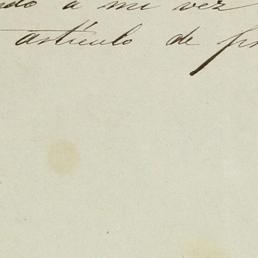 ndo a mi vez
artículo de